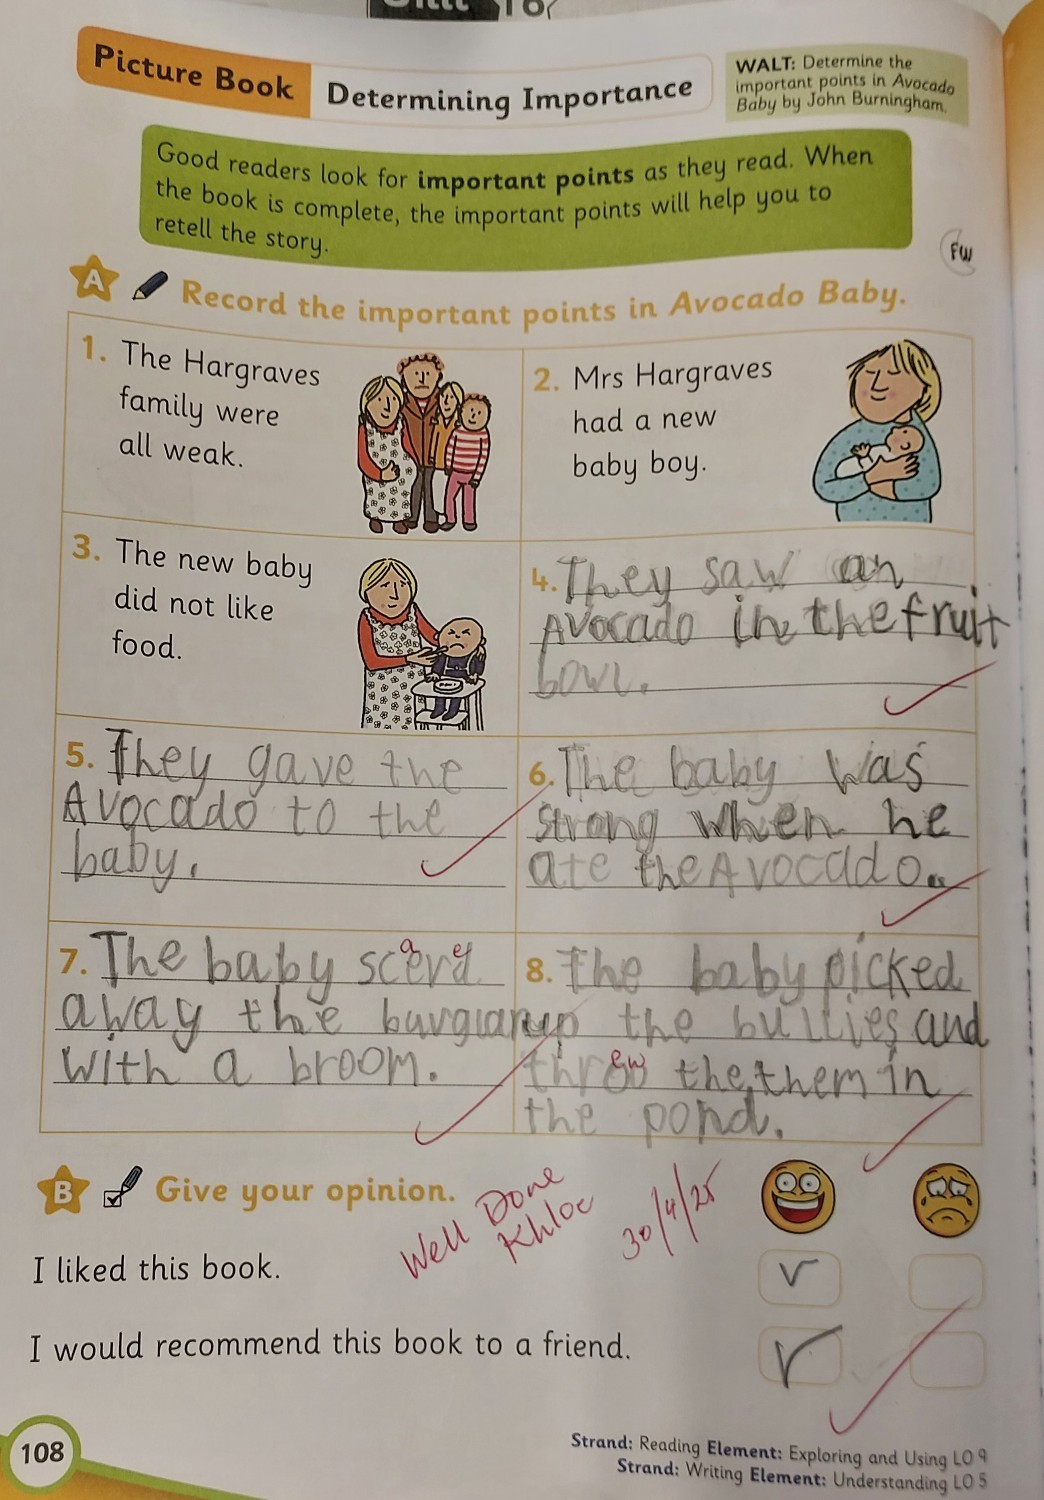 Picture Book
Determining Importance
WALT: Determine the
important points in Avocado
Baby by John Burningham.
Good readers look for important points as they read. When
the book is complete, the important points will help you to
retell the story.
FW
A Record the important points in Avocado Baby.
1. The Hargraves
family were
all weak.
2. Mrs Hargraves
had a new
baby boy.
3. The new baby
did not like
food.
4. They saw an
Avocado in the fruit
bowl.
5. They gave the
Avocado to the
baby.
6. The baby was
strong when he
ate the Avocado.
7. The baby scared
away the burglar
with a broom.
8. The baby picked
up the bullies and
threw the them in
the pond.
B Give your opinion.
Well Done
Khloe
30/4/25
I liked this book.
I would recommend this book to a friend.
108
Strand: Reading Element: Exploring and Using LO 9
Strand: Writing Element: Understanding LO 5